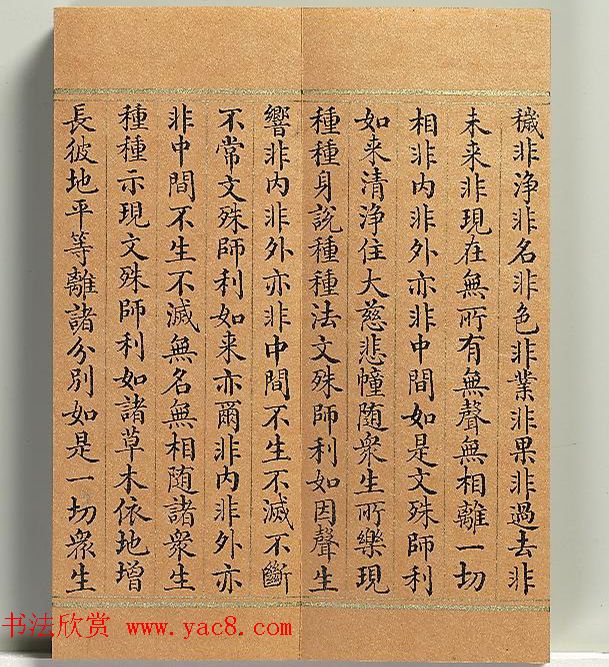 穢非淨非名非色非業非果非過去非
未来非現在無所有無聲無相離一切
相非内非外亦非中間如是文殊師利
如来清淨住大慈悲幢随衆生所樂現
種種身説種種法文殊師利如因聲生
響非内非外亦非中間不生不滅不斷
不常文殊師利如来亦爾非内非外亦
非中間不生不滅無名無相随諸衆生
種種示現文殊師利如諸草木依地增
長彼地平等離諸分別如是一切衆生
书法欣赏 www.yac8.com